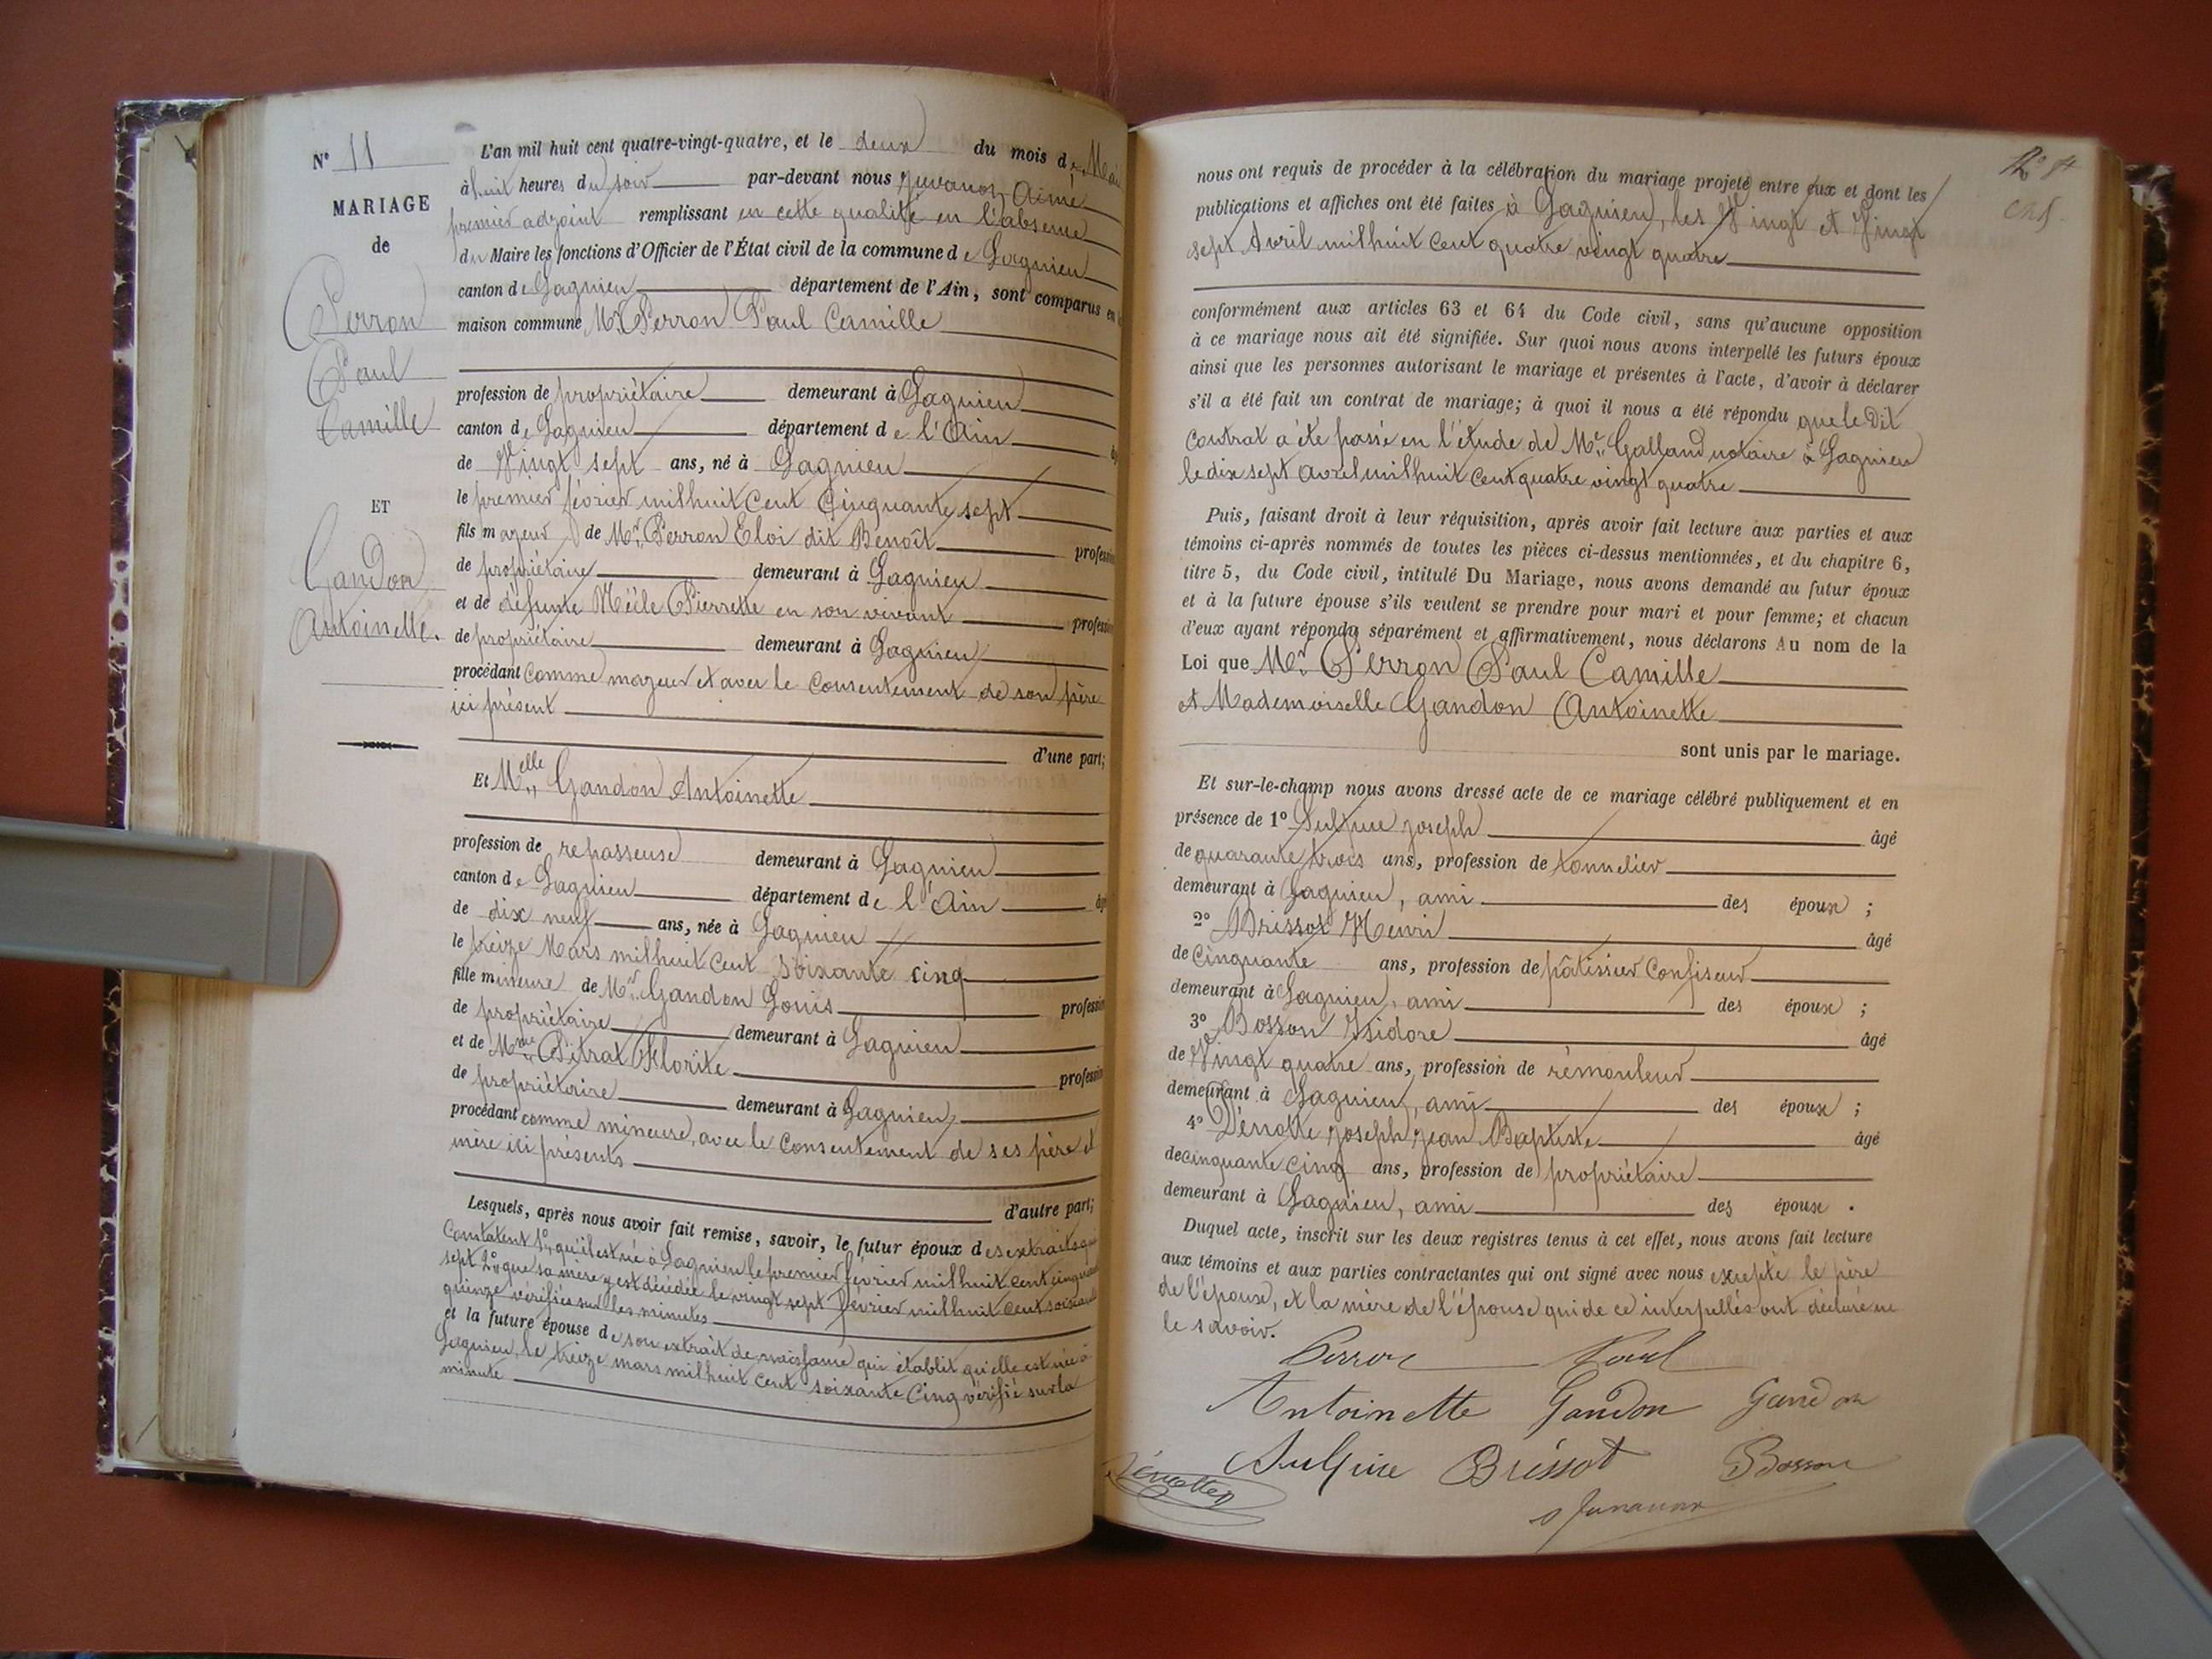 N° 11
MARIAGE
de
Perron
Paul
Camille
ET
Gandon
Antoinette.
L'an mil huit cent quatre-vingt-quatre, et le deux du mois de Mai
à huit heures du soir par-devant nous Juvanon Aimé
premier adjoint remplissant en cette qualité en l'absence
du Maire les fonctions d'Officier de l'État civil de la commune de Lagnieu
canton de Lagnieu département de l'Ain, sont comparus en
maison commune Mr Perron Paul Camille
profession de propriétaire demeurant à Lagnieu
canton de Lagnieu département de l'Ain
de Vingt sept ans, né à Lagnieu
le premier février mil huit cent cinquante sept
fils majeur de Mr Perron Eloi dit Benoît profession
de propriétaire demeurant à Lagnieu
et de défunte Pierrette en son vivant profession
de propriétaire demeurant à Lagnieu
procédant comme majeur et avec le consentement de son père
ici présent
d'une part;
Et Melle Gandon Antoinette
profession de repasseuse demeurant à Lagnieu
canton de Lagnieu département de l'Ain
de dix neuf ans, née à Lagnieu
le treize Mars mil huit cent soixante cinq
fille mineure de Mr Gandon Louis profession
de propriétaire demeurant à Lagnieu
et de Mme Pitrat Florite profession
de propriétaire demeurant à Lagnieu
procédant comme mineure, avec le consentement de ses père et
mère ici présents
d'autre part;
Lesquels, après nous avoir fait remise, savoir, le futur époux des extraits qui
constatent 1° qu'il est né à Lagnieu le premier février mil huit cent cinquante
sept 2° que sa mère y est décédée le vingt sept février mil huit cent soixante
quinze vérifiés sur les minutes
et la future épouse de son extrait de naissance qui établit qu'elle est née à
Lagnieu, le treize mars mil huit cent soixante cinq vérifié sur la
minute
nous ont requis de procéder à la célébration du mariage projeté entre eux et dont les
publications et affiches ont été faites à Lagnieu, les Vingt et Vingt
sept Avril mil huit cent quatre vingt quatre
conformément aux articles 63 et 64 du Code civil, sans qu'aucune opposition
à ce mariage nous ait été signifiée. Sur quoi nous avons interpellé les futurs époux
ainsi que les personnes autorisant le mariage et présentes à l'acte, d'avoir à déclarer
s'il a été fait un contrat de mariage; à quoi il nous a été répondu que le dit
contrat a été passé en l'étude de Me Galland notaire à Lagnieu
le dix sept avril mil huit cent quatre vingt quatre
Puis, faisant droit à leur réquisition, après avoir fait lecture aux parties et aux
témoins ci-après nommés de toutes les pièces ci-dessus mentionnées, et du chapitre 6,
titre 5, du Code civil, intitulé Du Mariage, nous avons demandé au futur époux
et à la future épouse s'ils veulent se prendre pour mari et pour femme; et chacun
d'eux ayant répondu séparément et affirmativement, nous déclarons Au nom de la
Loi que Mr Perron Paul Camille
et Mademoiselle Gandon Antoinette
sont unis par le mariage.
Et sur-le-champ nous avons dressé acte de ce mariage célébré publiquement et en
présence de 1° Sulpice Joseph âgé
de quarante trois ans, profession de tonnelier
demeurant à Lagnieu, ami des époux ;
2° Brissot Henri âgé
de cinquante ans, profession de pâtissier confiseur
demeurant à Lagnieu, ami des époux ;
3° Bosson Isidore âgé
de Vingt quatre ans, profession de rémouleur
demeurant à Lagnieu, ami des époux ;
4° Joseph Jean Baptiste âgé
de cinquante cinq ans, profession de propriétaire
demeurant à Lagnieu, ami des époux .
Duquel acte, inscrit sur les deux registres tenus à cet effet, nous avons fait lecture
aux témoins et aux parties contractantes qui ont signé avec nous excepté le père
de l'époux, et la mère de l'épouse qui de ce interpellés ont déclaré ne
le savoir.
Perron Paul
Antoinette Gandon Gandon
Sulpice Brissot Bosson